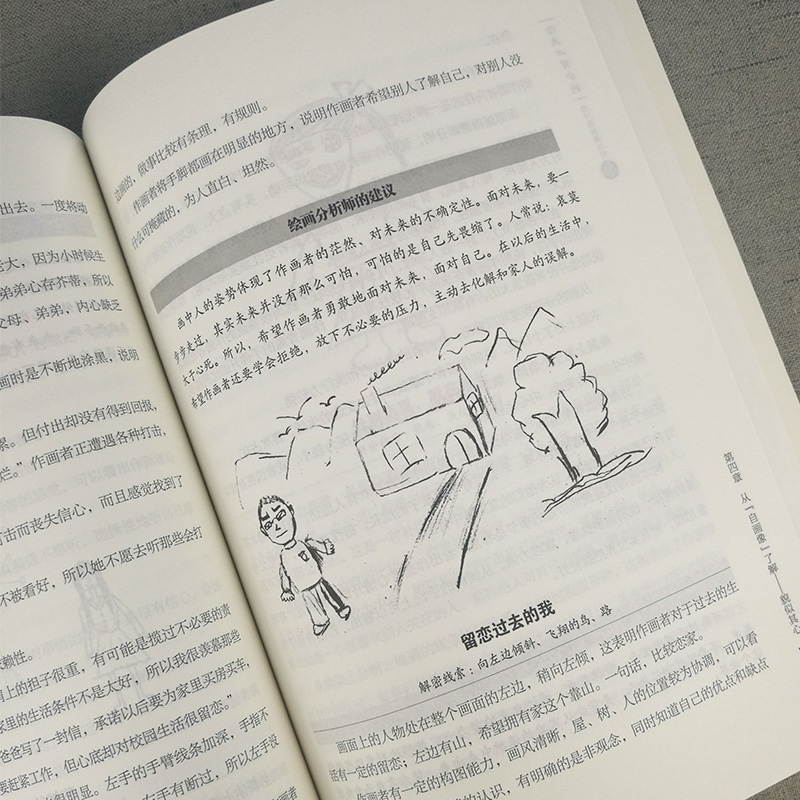 出去。一度将动
老大，因为小时候生
弟弟心存芥蒂，所以
父母、弟弟，内心缺乏
画时是不断地涂黑，说明
累。但付出却没有得到回报，
烂。”作画者正遭遇各种打击，
打击而丧失信心，而且感觉找到了
不被看好，所以她不愿去听那些会打
赖性。
肩上的担子很重，有可能是揽过不必要的责
家里的生活条件不是太好，所以我很羡慕那些
爸爸写了一封信，承诺以后要为家里买房买车，
要赶紧工作，但心底却对校园生活很留恋。”
很明显。左手的手臂线条加深，手指不
左手有断过，所以左手没
边画的，做事比较有条理，有规则。
作画者将手脚都画在明显的地方，说明作画者希望别人了解自己，对别人没
什么可掩藏的，为人直白、坦然。
绘画分析师的建议
画中人的姿势体现了作画者的茫然、对未来的不确定性。面对未来，要一
步步走过，其实未来并没有那么可怕，可怕的是自己先畏缩了。人常说：哀莫
大于心死。所以，希望作画者勇敢地面对未来，面对自己。在以后的生活中，
希望作画者还要学会拒绝，放下不必要的压力，主动去化解和家人的误解。
留恋过去的我
解密线索：向左边倾斜、飞翔的鸟、路
画面上的人物处在整个画面的左边，稍向左倾，这表明作画者对于过去的生
活有一定的留恋；左边有山，希望拥有家这个靠山。一句话，比较恋家。
作画者有一定的构图能力，画风清晰，屋、树、人的位置较为协调，可以看
的认识，有明确的是非观念，同时知道自己的优点和缺点
第四章 从“自画像”了解——貌似其心